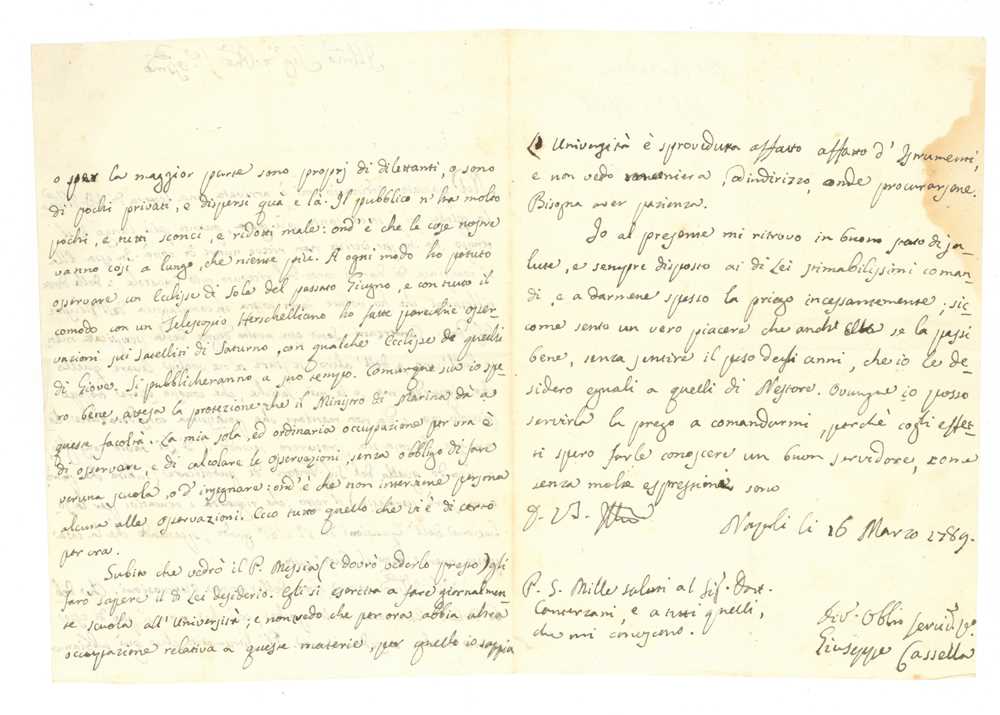 o per la maggior parte sono proprj di dilettanti, o sono
di pochi privati, e dispersi quà e là. Il pubblico n'ha molto
pochi, e tutti sconci, e ridotti male: ond'è che le cose nostre
vanno così a lungo, che niente più. A ogni modo ho potuto
osservare un Eclisse di Sole del passato Giugno, e con tutto il
comodo con un Telescopio Herschelliano ho fatte parecchie osser-
vazioni sui satelliti di Saturno, con qualche Ecclisse de quelli
di Giove. Si pubblicheranno a suo tempo. Comunque sia io spe-
ro bene, attesa la protezione che il Ministro di Marina dà a
queste facoltà. La mia sola, ed ordinaria occupazione per ora è
di osservare, e di calcolare le osservazioni, senza obbligo di fare
veruna scuola, o d'insegnare: ond'è che non interviene persona
alcuna alle osservazioni. Ecco tutto quello che vi è di certo
per ora.
Subito che vedrò il P. Messia (e dovrò vederlo presto) gli
farò sapere il di Lei desiderio. Egli si esercita a fare giornalmen-
te scuola all'Università; e non vedo che per ora abbia altra
occupazione relativa a queste materie, per quello io sappia
L'Università è sproveduta affatto affatto d'Istrumenti,
e non vedo maniera, o indirizzo, onde procurarsene.
Bisogna aver pazienza.
Io al presente mi ritrovo in buono stato di sa-
lute, e sempre disposto ai di Lei stimabilissimi coman-
di, e a darmene spesso la priego incessantemente; sic-
come sento un vero piacere che anch'Ella se la passi
bene, senza sentire il peso degli anni, che io le de-
sidero eguali a quelli di Nestore. Ovunque io posso
servirla la prego a comandarmi, perchè cogli effet-
ti spero farle conoscere un buon servidore, come
senza molte espressioni sono
D. V. S. Illma
Napoli li 16 Marzo 1789.
P. S. Mille saluti al Sig. Dott.
Canterzani, e a tutti quelli,
che mi conoscono.
Div. Obblmo Servid. Vo
Giuseppe Cassella